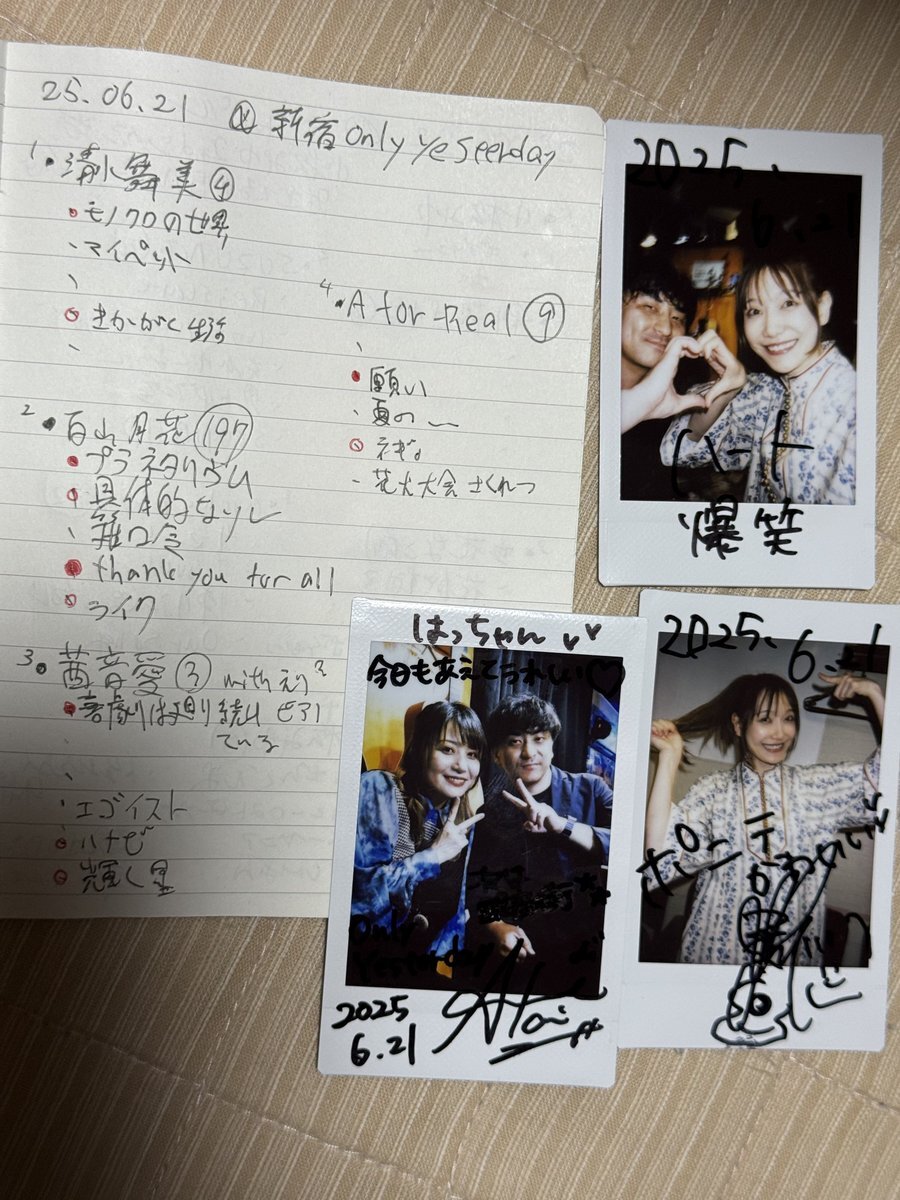 25.06.21 @ 新宿 Only Yeseerday
1. 清水舞美 ④
モノクロの世界
マイペット
きかがく生活
2 百山月花 197
プラネタリウム
具体的な
早口
thank you for all
ライク
3. 茜音愛 ③ with えり
言慮りは廻り続け
ている
エゴイスト
ハナビ
輝く星
4. A for-Real ⑨
願い
夏の〜
ネギ。
花火大会
2025、
6.21
ハート
爆笑
はっちゃん
今日もあえてうれしい♡
Only
Yesterday
2025
6.21
2025、
6.21
ポニテ